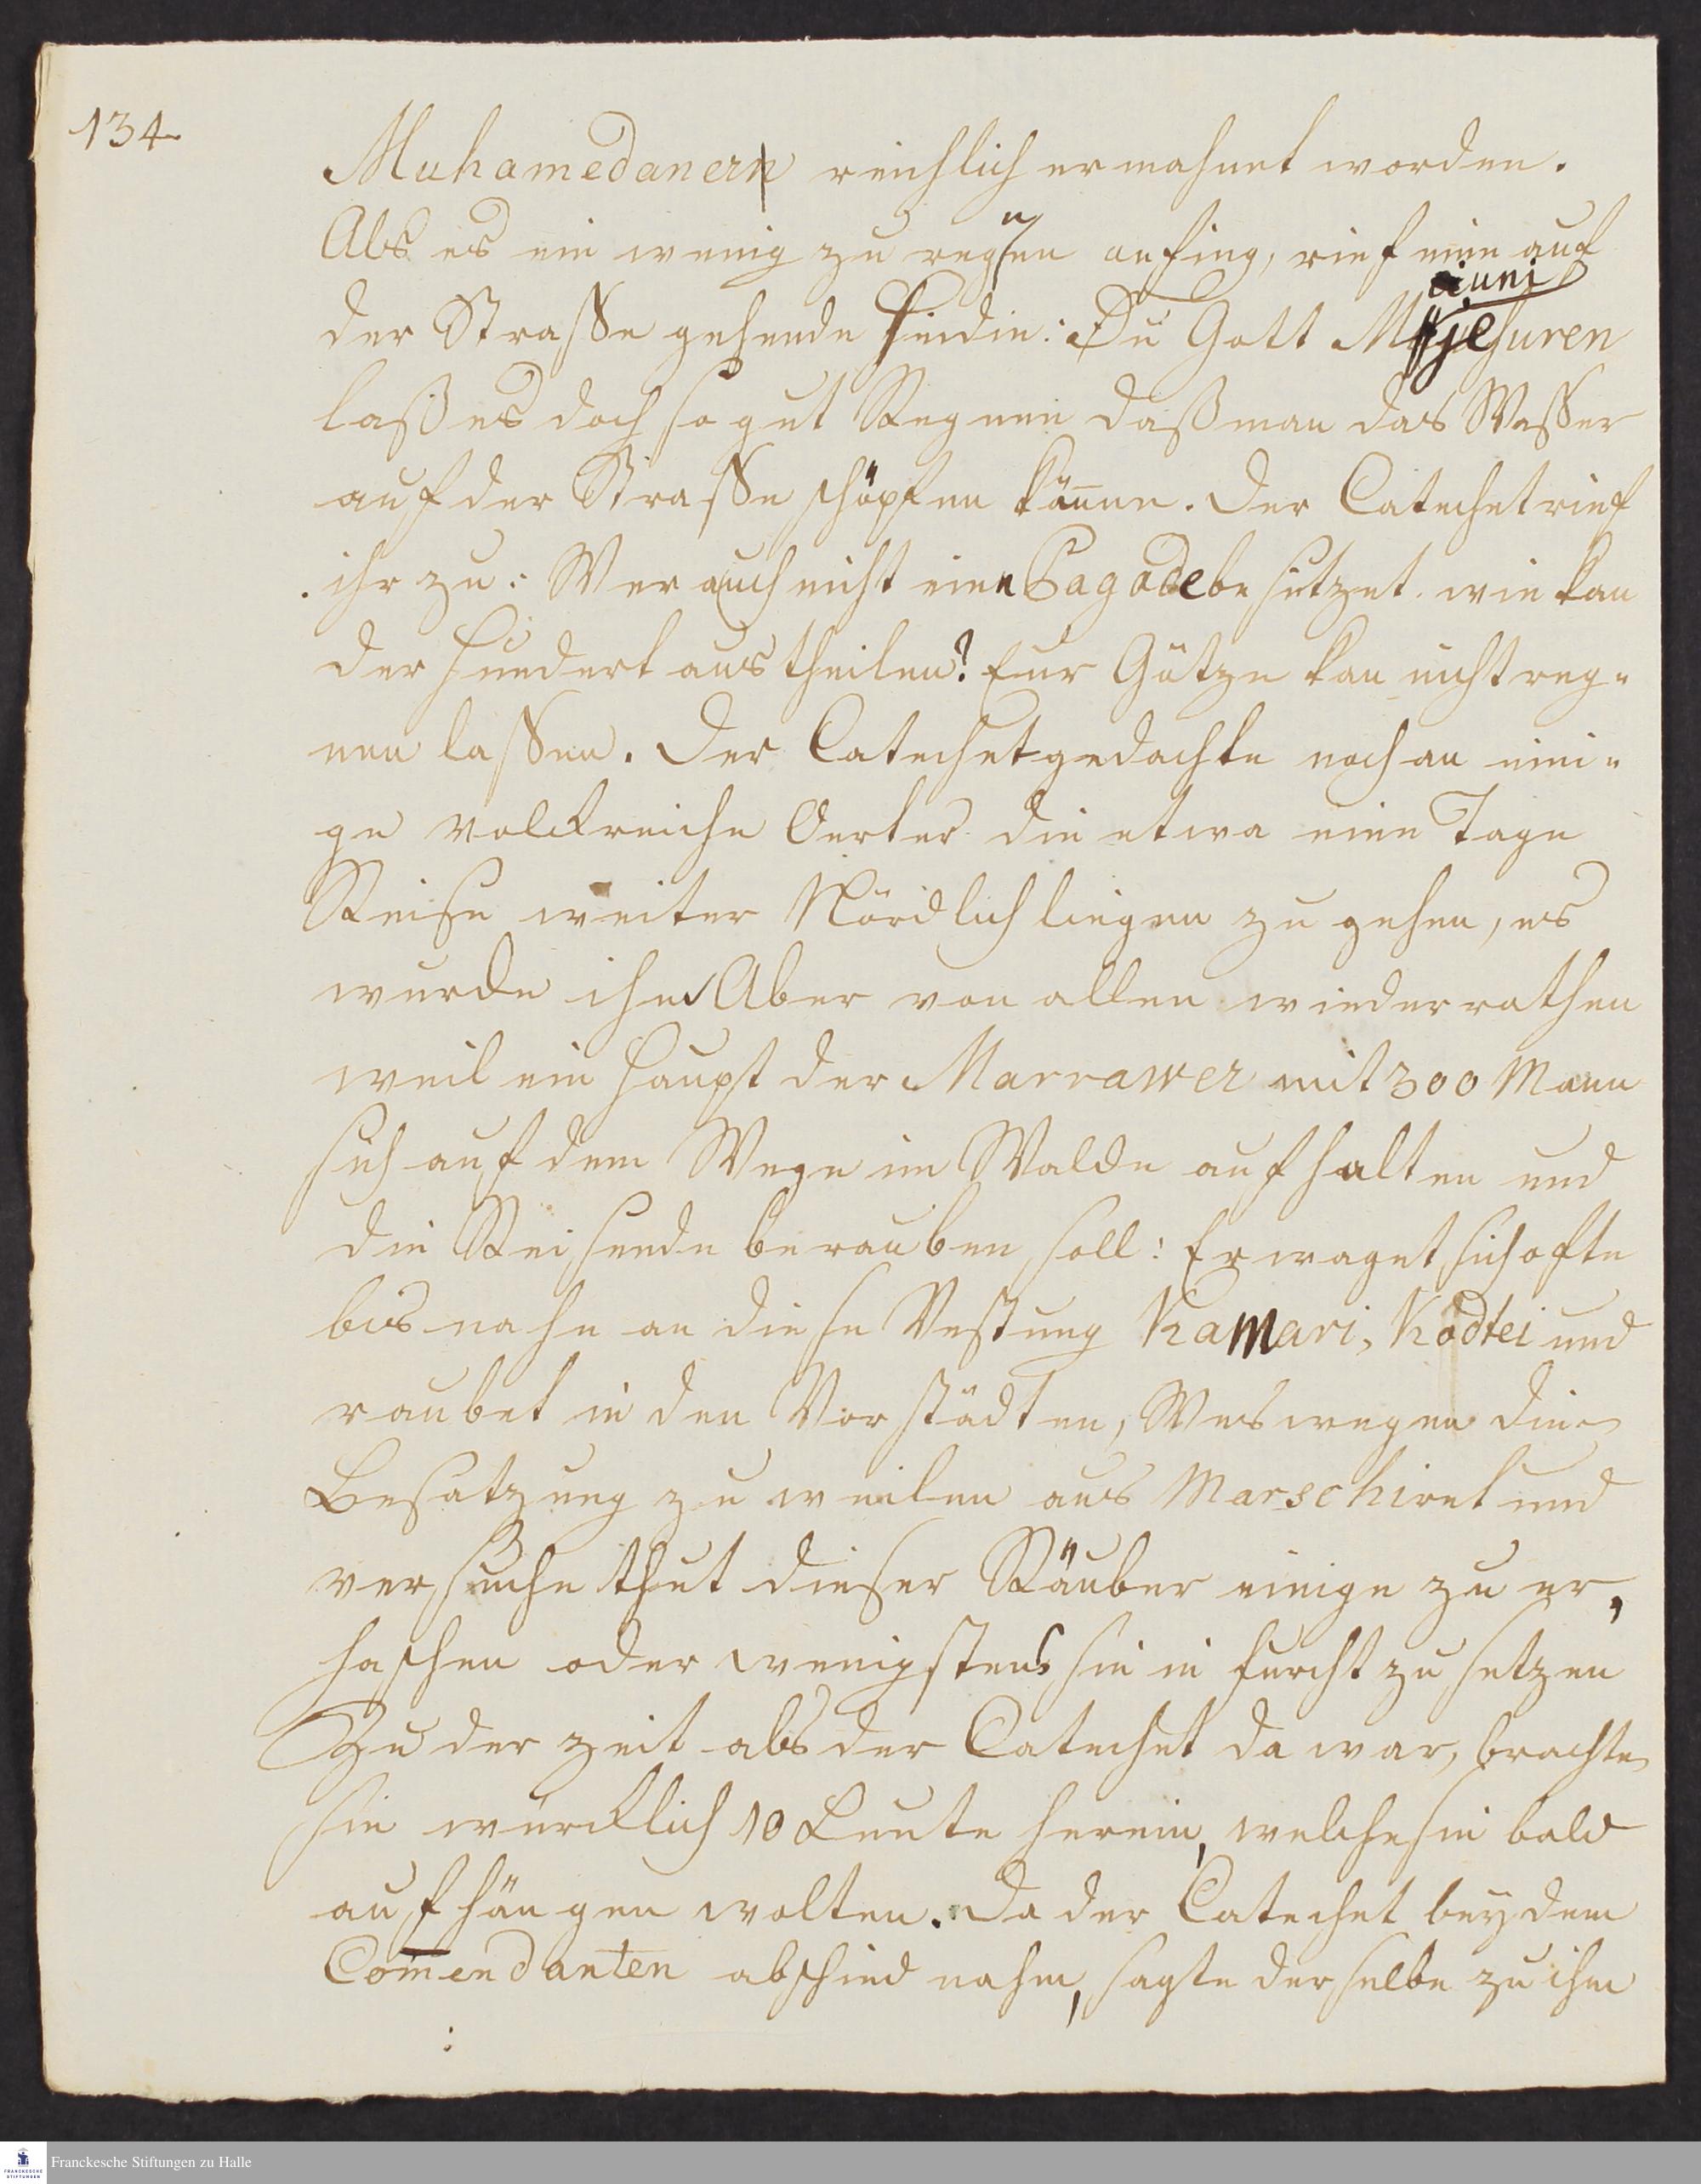 134.
Muhamedanern reichlich ermahnet worden.
Als es ein wenig zu regnen anfing, rief eine auf
der Straße gehende Heidin: Du Gott
laß es doch so gut Regnen daß man das Waßer
auf der Straße schöpfen könne. Der Catechet rief
ihr zu: Wer auch nicht eine Pagode besitzet wie kan
der hundert austheilen? Eur Götze kan nicht reg-
nen laßen. Der Catechet gedachte noch an eini-
ge volckreiche Oerter die etwa eine Tage
Reise weiter Nördlich liegen zu gehen, es
wurde ihm Aber von allen wiederrathen
weil ein Haupt der Marrawer mit 300 Mann
sich auf dem Wege im Walde aufhalten und
die Reisende berauben soll: Er waget sich ofte
bis nahe an diese Vestung Kamari, Kodtei und
raubet in den Vorstädten, Weswegen die
Besatzung zuweilen aus Marschiret und
versuche thut dieser Räuber einige zu er-
haschen oder wenigstens sie in furcht zu setzen
Zu der zeit als der Catechet da war, brachte
sie würcklich 10 Leute herein, welche sie bald
aufhängen wolten. Da der Catechet bey dem
Com̄endanten abschied nahm, sagte derselbe zu ihm
Franckesche Stiftungen zu Halle
FRANCKESCHE
STIFTUNGEN